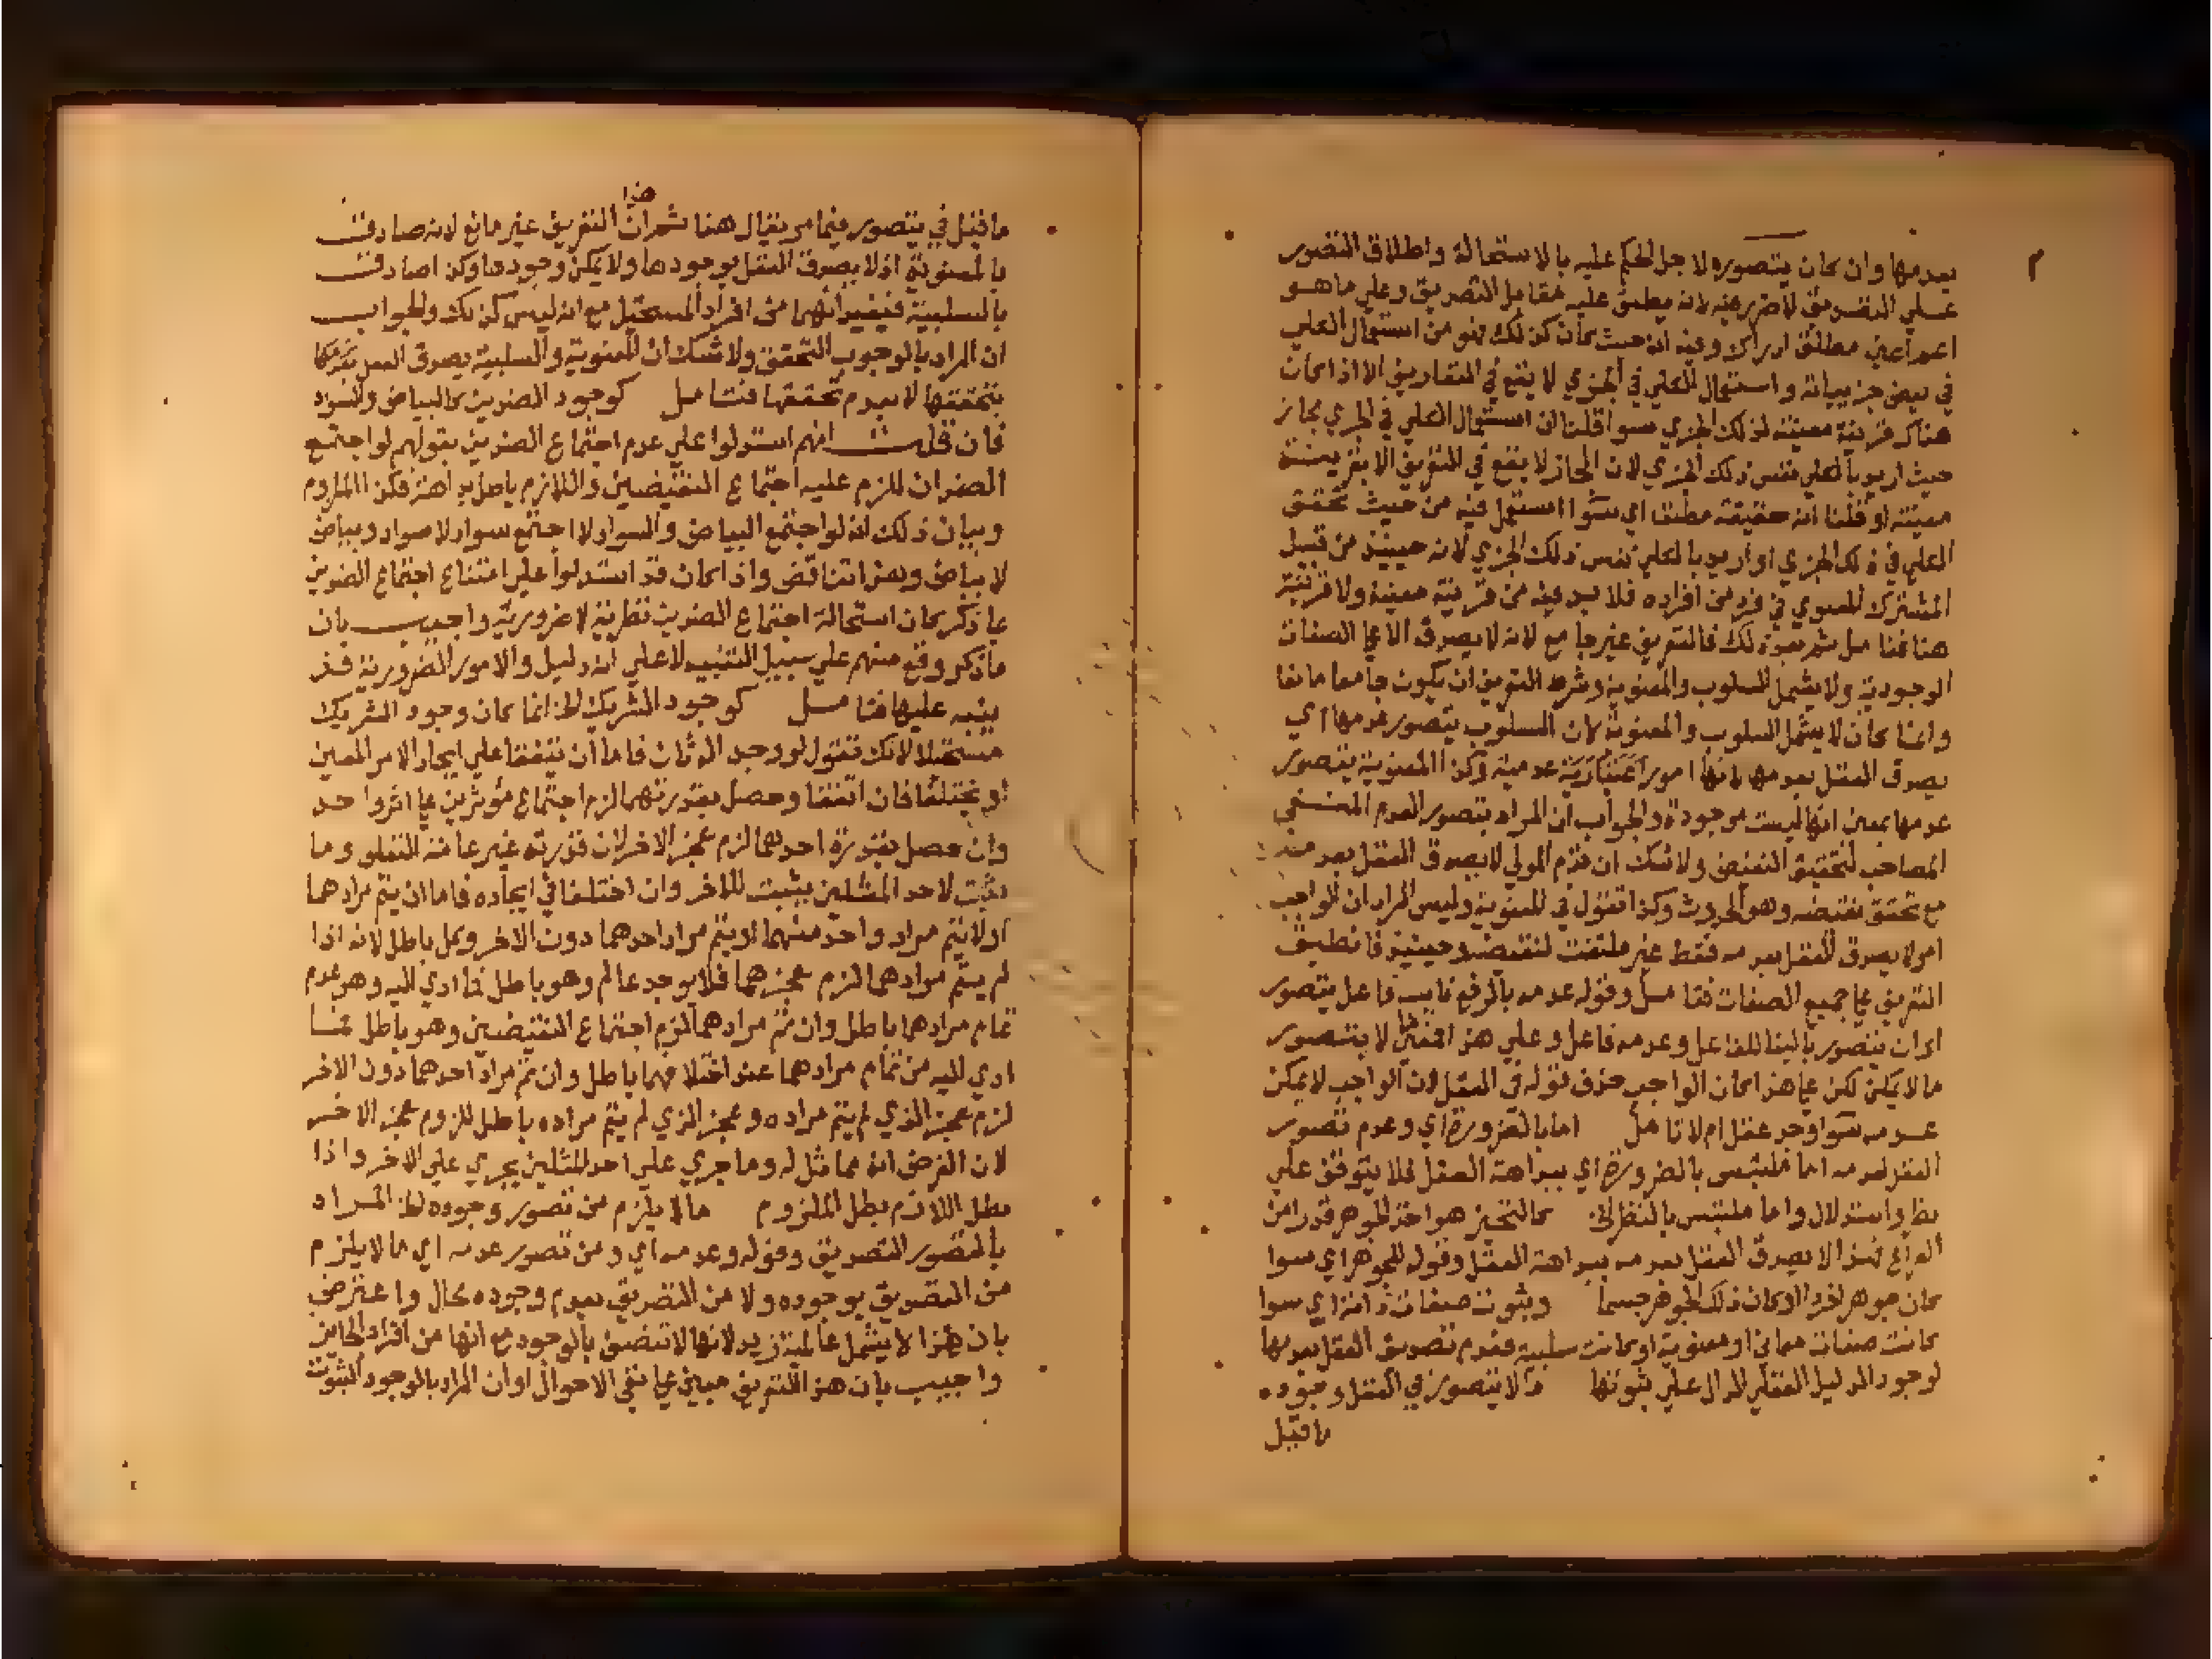 بعدمها وان كان يتصوره لاجل الحكم عليه بالاستحالة واطلاق التصور
علي التصديق لا ضرر فيه لانه يطلق عليه مقابل التصديق وعلي ما هو
اعم اعني مطلق ادراك وفيه انه حيث كان كذلك فهو من استعمال الكلي
في بعض جزيياته واستعمال الكلي في الجزي لا يقع في التعاريف الا اذا كان
هناك قرينة معينة لذلك الجزي سوا قلنا ان استعمال الكلي في الجزي مجاز
حيث اريد بالكلي نفس ذلك الجزي لان المجاز لا يقع في التعريف الا بقرينة
معينة او قلنا انه حقيقة مطلقا اي سوا استعمل فيه من حيث تحقق
الكلي في ذلك الجزي او اريد بالكلي نفس ذلك الجزي لانه حينيذ من قبيل
المشترك المعنوي في فرد من افراده فلا بد فيه من قرينة معينة ولا قرينة
هنا فتامل ثم بعد ذلك فالتعريف غير جامع لانه لا يصدق الا علي الصفات
الوجودية ولا يشمل السلوب والمعنوية وشرط التعريف ان يكون جامعا مانعا
وانما كان لا يشمل السلوب والمعنوية لان السلوب يتصور عدمها اي
يصدق العقل بعدمها لانها امور اعتبارية عدمية وكذا المعنوية يتصور
عدمها بمعني انها ليست موجودة والجواب ان المراد بتصور العدم المنفي
المصاحب لتحقيق النقيض ولا شك ان قدم المولي لا يصدق العقل بعدمه
مع تحقق نقيضه وهو الحدوث وكذا تقول في المعنوية وليس المراد ان الواجب
امر لا يصدق العقل بعدمه فقط غير ملتفت لنقيضه وحينيذ فانطبق
التعريف علي جميع الصفات فتامل وقوله عدمه بالرفع نايب فاعل يتصور
اي ان يتصور بالبنا للفاعل وعدمه فاعل وعلي هذا فمعني لا يتصور
ما لا يمكن لكن علي هذا كان الواجب حذف قوله في العقل لان الواجب لا يمكن
عدمه سوا وجد عقل ام لا تامل اما بالضرورة اي وعدم تصور
العقل لعدمه اما ملتبس بالضرورة اي ببداهة العقل فلا يتوقف علي
نظر واستدلال واما ملتبس بالنظر الخ كالتحيز هو اخذ الجوهر قدرا من
الفراغ فهذا لا يصدق العقل بعدمه ببداهة العقل وقوله للجوهر اي سوا
كان جوهرا فردا او كان ذلك الجوهر جسما وثبوت صفات ذاته اي سوا
كانت صفات معاني او معنوية او كانت سلبية فعدم تصديق العقل بعدمها
لوجود الدليل العقلي الدال علي ثبوتها ما لا يتصور في العقل وجوده
ما قيل
ما قيل في يتصور فيما مر يقال هنا ثم ان هذا التعريف غير مانع لانه صادق
بالمعنوية اذ لا يصدق العقل بوجودها ولا يمكن وجودها وكذا صادق
بالسلبية فيفيد انهما من افراد المستحيل مع انه ليس كذلك والجواب
ان المراد بالوجوب التحقق ولا شك ان المعنوية والسلبية يصدق العقل
بتحققها لا بعدم تحققها فتامل كوجود الضدين كالبياض والسواد
فان قلت انهم استدلوا علي عدم اجتماع الضدين بقولهم لو اجتمع
الضدان للزم عليه اجتماع النقيضين واللازم باطل بداهة فكذا الملزوم
وبيان ذلك انه لو اجتمع البياض والسواد لاجتمع سواد لا سواد وبياض
لا بياض وهذا تناقض واذا كان قد استدلوا علي امتناع اجتماع الضدين
بما ذكر كان استحالة اجتماع الضدين نظرية لا ضرورية واجيب بان
ما ذكر وقع منهم علي سبيل التنبيه لا علي انه دليل والامور الضرورية قد
ينبه عليها فتامل كوجود الشريك الخ انما كان وجود الشريك
مستحيلا لانك تقول لو وجد اله ثان فاما ان يتفقا علي ايجاد الامر المعين
او يختلفا فان اتفقا وحصل بقدرتهما لزم اجتماع مؤثرين علي اثر واحد
وان حصل بقدرة احدهما لزم عجز الاخر لان قدرته غير عامة التعلق وما
يثبت لاحد المثلين يثبت للاخر وان اختلفا في ايجاده فاما ان يتم مرادهما
او لا يتم مراد واحد منهما او يتم مراد احدهما دون الاخر وكل باطل لانه اذا
لم يتم مرادهما لزم عجزهما فلا يوجد عالم وهو باطل فما ادي اليه وهو عدم
تمام مرادهما باطل وان تم مرادهما لزم اجتماع النقيضين وهو باطل فما
ادي اليه من تمام مرادهما عند اختلافهما باطل وان تم مراد احدهما دون الاخر
لزم عجز الذي لم يتم مراده وعجز الذي لم يتم مراده باطل للزوم عجز الاخر
لان الفرض انه مماثل له وما جري علي احد المثلين يجري علي الاخر واذا
بطل اللازم بطل الملزوم ما لا يلزم من تصور وجوده الخ المراد
بالتصور التصديق وقوله وعدمه اي ومن تصور عدمه اي ما لا يلزم
من التصديق بوجوده ولا من التصديق بعدم وجوده محال واعترض
بان هذا لا يشمل عالمية زيد لانها لا تتصف بالوجود مع انها من افراد الجايز
واجيب بان هذا التعريف مبني علي نفي الاحوال او ان المراد بالوجود الثبوت